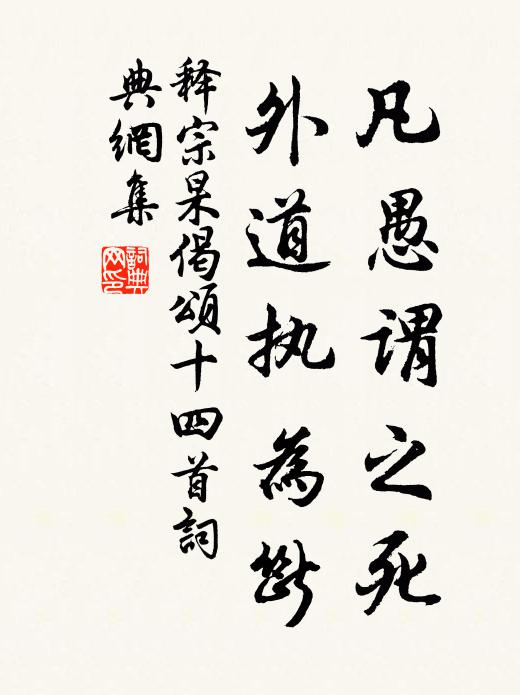 凡愚谓之死
外道执為斷
释宗杲偈頌十四首詞
典網集
詞典網印